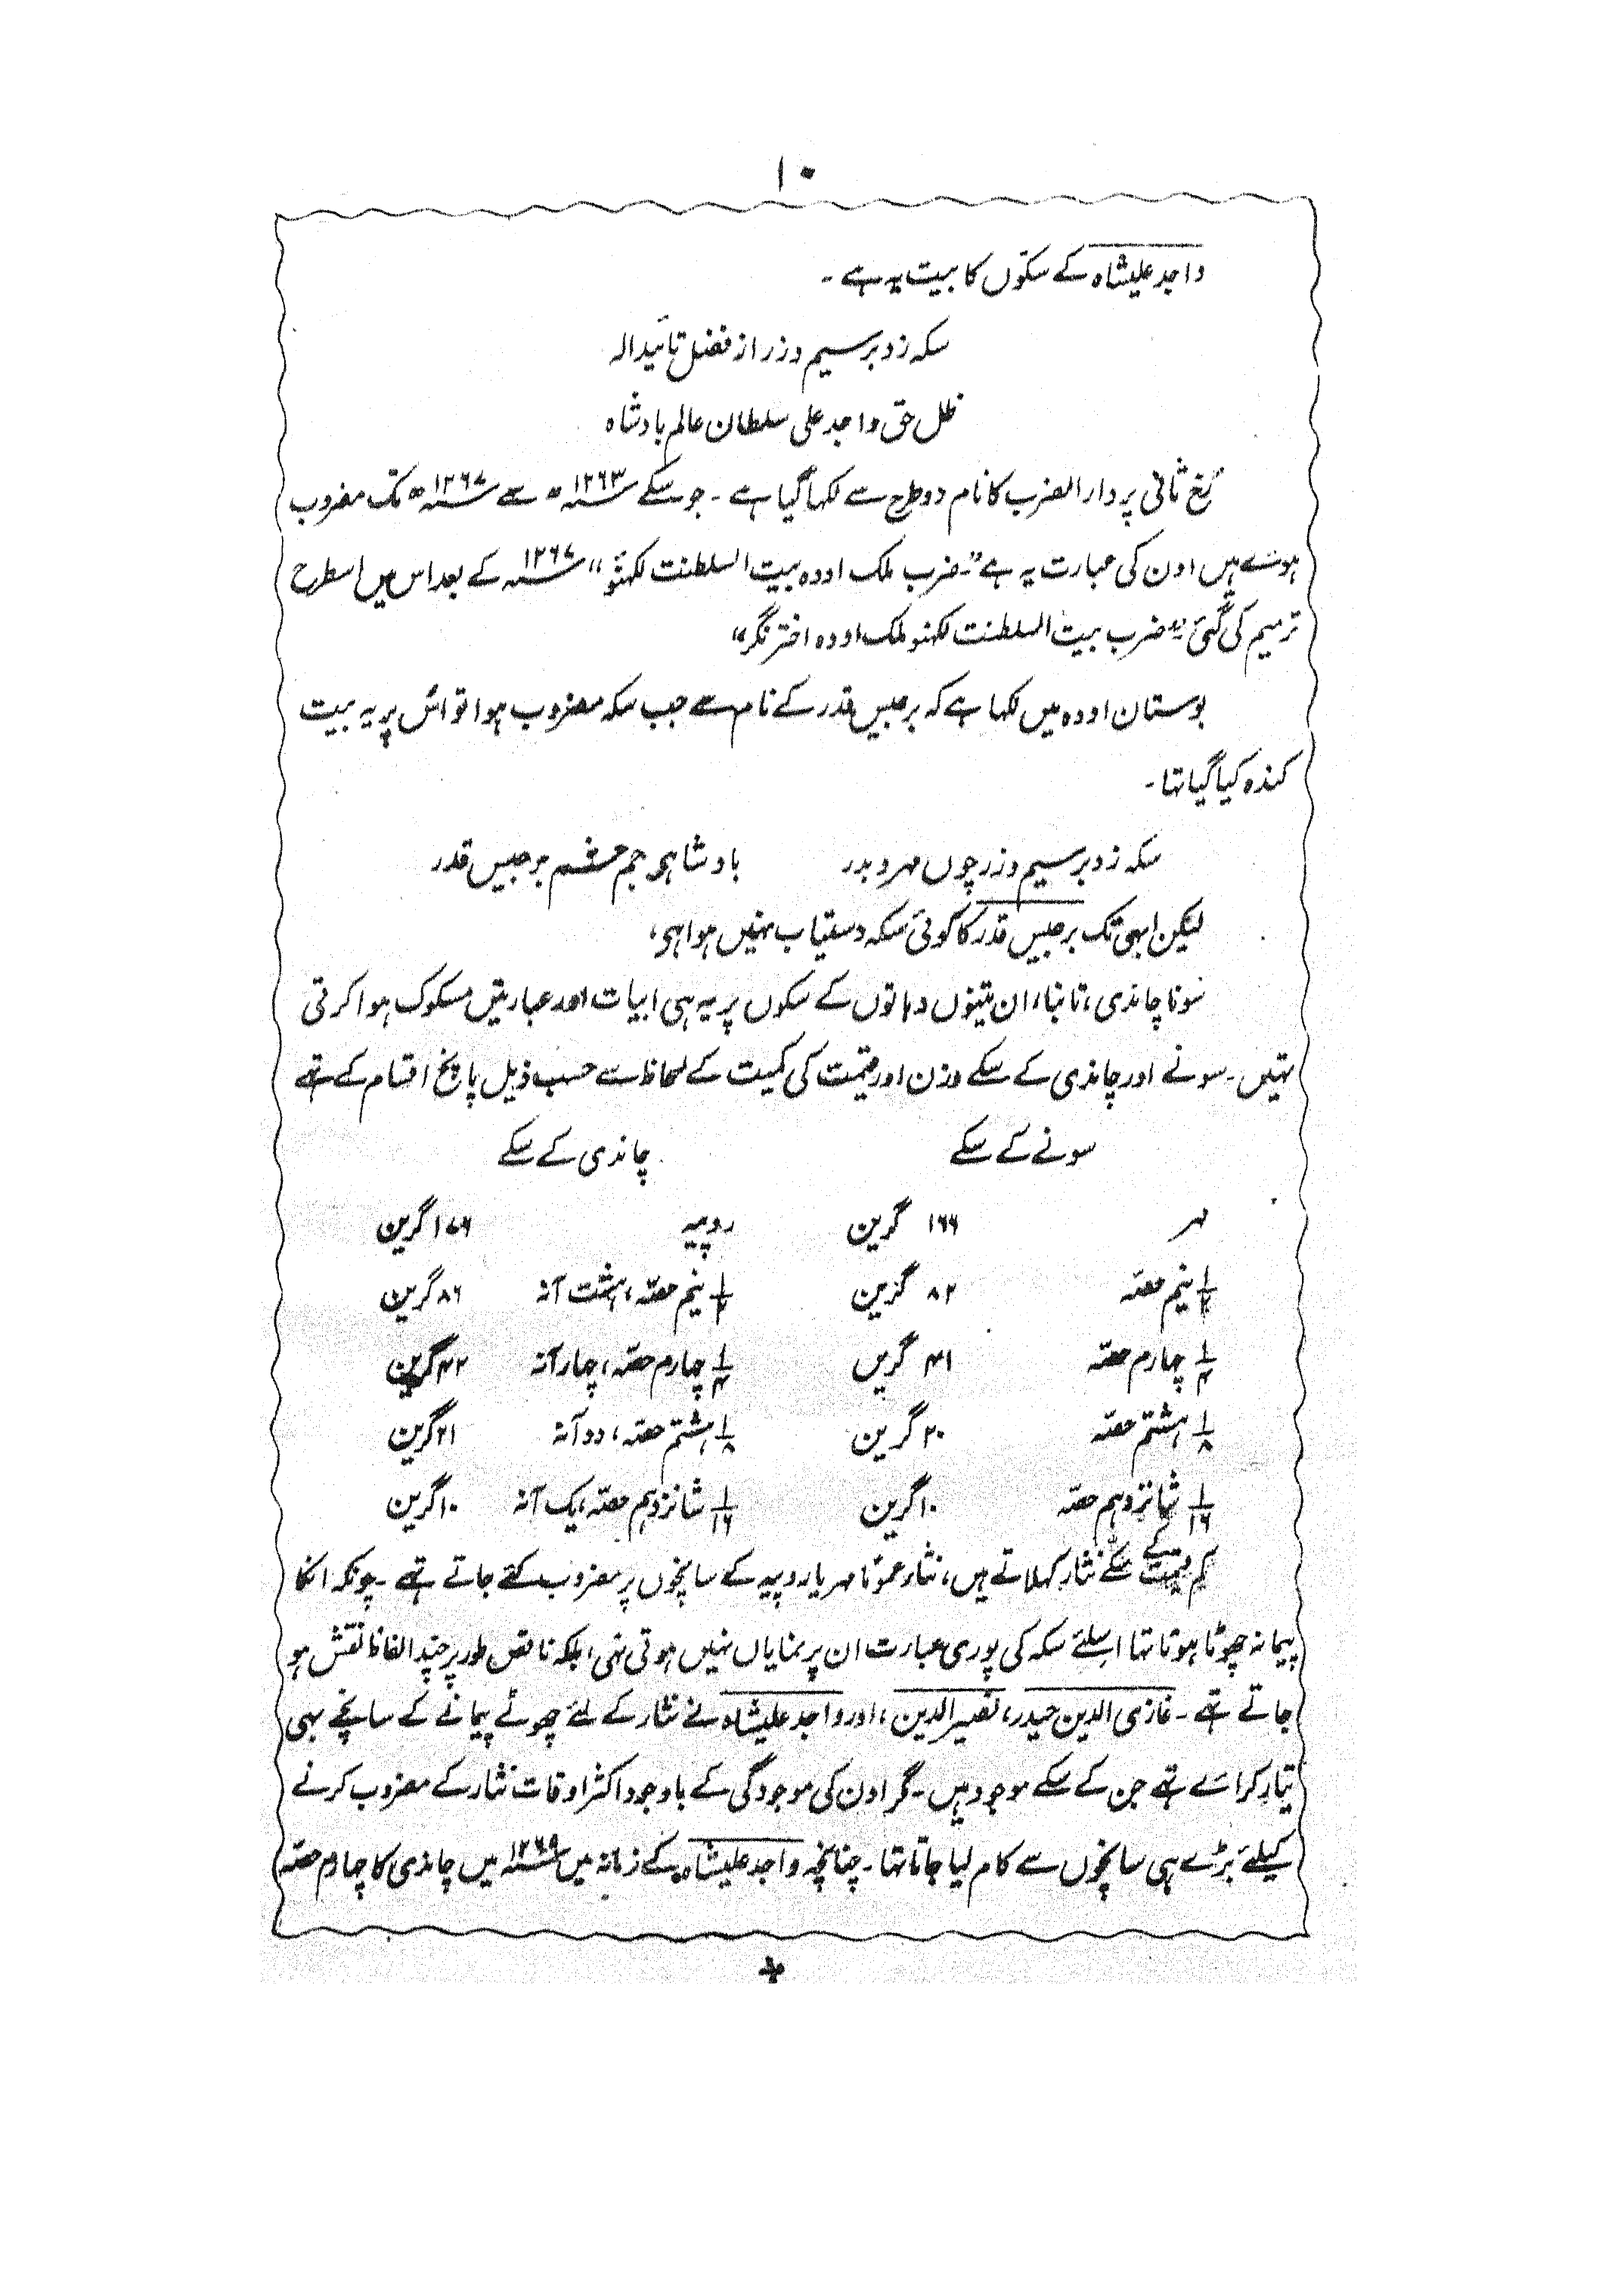 ۱۰
واجد علیشاہ کے سکوں کا بیت یہ ہے ۔
سکہ زد بر سیم و زر از فضل تائید الہ
ظل حق واجد علی سلطان عالم بادشاہ
رُخ ثانی پر دار الضرب کا نام دو طرح سے لکہا گیا ہے ۔ جو سکے سنہ ۱۲۶۳ھ سے سنہ ۱۲۶۷ھ تک مضروب
ہوئے ہیں اون کی عبارت یہ ہے ”ضرب ملک اودہ بیت السلطنت لکہنؤ“ سنہ ۱۲۶۷ کے بعد اس میں اسطرح
ترمیم کی گئی ”ضرب بیت السلطنت لکہنو ملک اودہ اختر نگر“
بوستان اودہ میں لکہا ہے کہ برجیس قدر کے نام سے جب سکہ مضروب ہوا تو اس پر یہ بیت
کندہ کیا گیا تہا ۔
سکہ زد بر سیم و زر چوں مہر و بدر بادشاہی جم حشم برجیس قدر
لیکن ابہی تک برجیس قدر کا کوئی سکہ دستیاب نہیں ہوا ہی،
سونا چاندی، تانبا، ان تینوں دہاتوں کے سکوں پر یہ ہی ابیات اور عبارتیں مسکوک ہوا کرتی
تہیں ۔ سونے اور چاندی کے سکے وزن اور قیمت کی کمیت کے لحاظ سے حسب ذیل پانچ اقسام کے تہے
سونے کے سکے چاندی کے سکے
مہر ۱۶۶ گرین روپیہ ۱۷۶ گرین
۱/۲ نیم حصّہ ۸۲ گرین ۱/۲ نیم حصّہ، ہشت آنہ ۸۶ گرین
۱/۴ چہارم حصّہ ۴۱ گرین ۱/۴ چہارم حصّہ، چہار آنہ ۴۲ گرین
۱/۸ ہشتم حصّہ ۲۰ گرین ۱/۸ ہشتم حصّہ، دو آنہ ۲۱ گرین
۱/۱۶ شانزدہم حصّہ ۱۰ گرین ۱/۱۶ شانزدہم حصّہ، یک آنہ ۱۰ گرین
کم قیمت کے سکّے نثار کہلاتے ہیں، نثار عموًما مہر یا روپیہ کے سانچوں پر مضروب کئے جاتے تہے ۔ چونکہ انکا
پیمانہ چہوٹا ہوتا تہا اسلئے سکہ کی پوری عبارت ان پر نمایاں نہیں ہوتی تہی، بلکہ ناقص طور پر چند الفاظ نقش ہو
جاتے تہے ۔ غازی الدین حیدر، نصیر الدین، اور واجد علیشاہ نے نثار کے لئے چہوٹے پیمانے کے سانچے بہی
تیار کرائے تہے جن کے سکے موجود ہیں ۔ مگر اون کی موجودگی کے باوجود اکثر اوقات نثار کے مضروب کرنے
کیلئے بڑے ہی سانچوں سے کام لیا جاتا تہا ۔ چنانچہ واجد علیشاہ کے زمانہ میں سنہ ۱۲۶۹ میں چاندی کا چہارم حصّہ